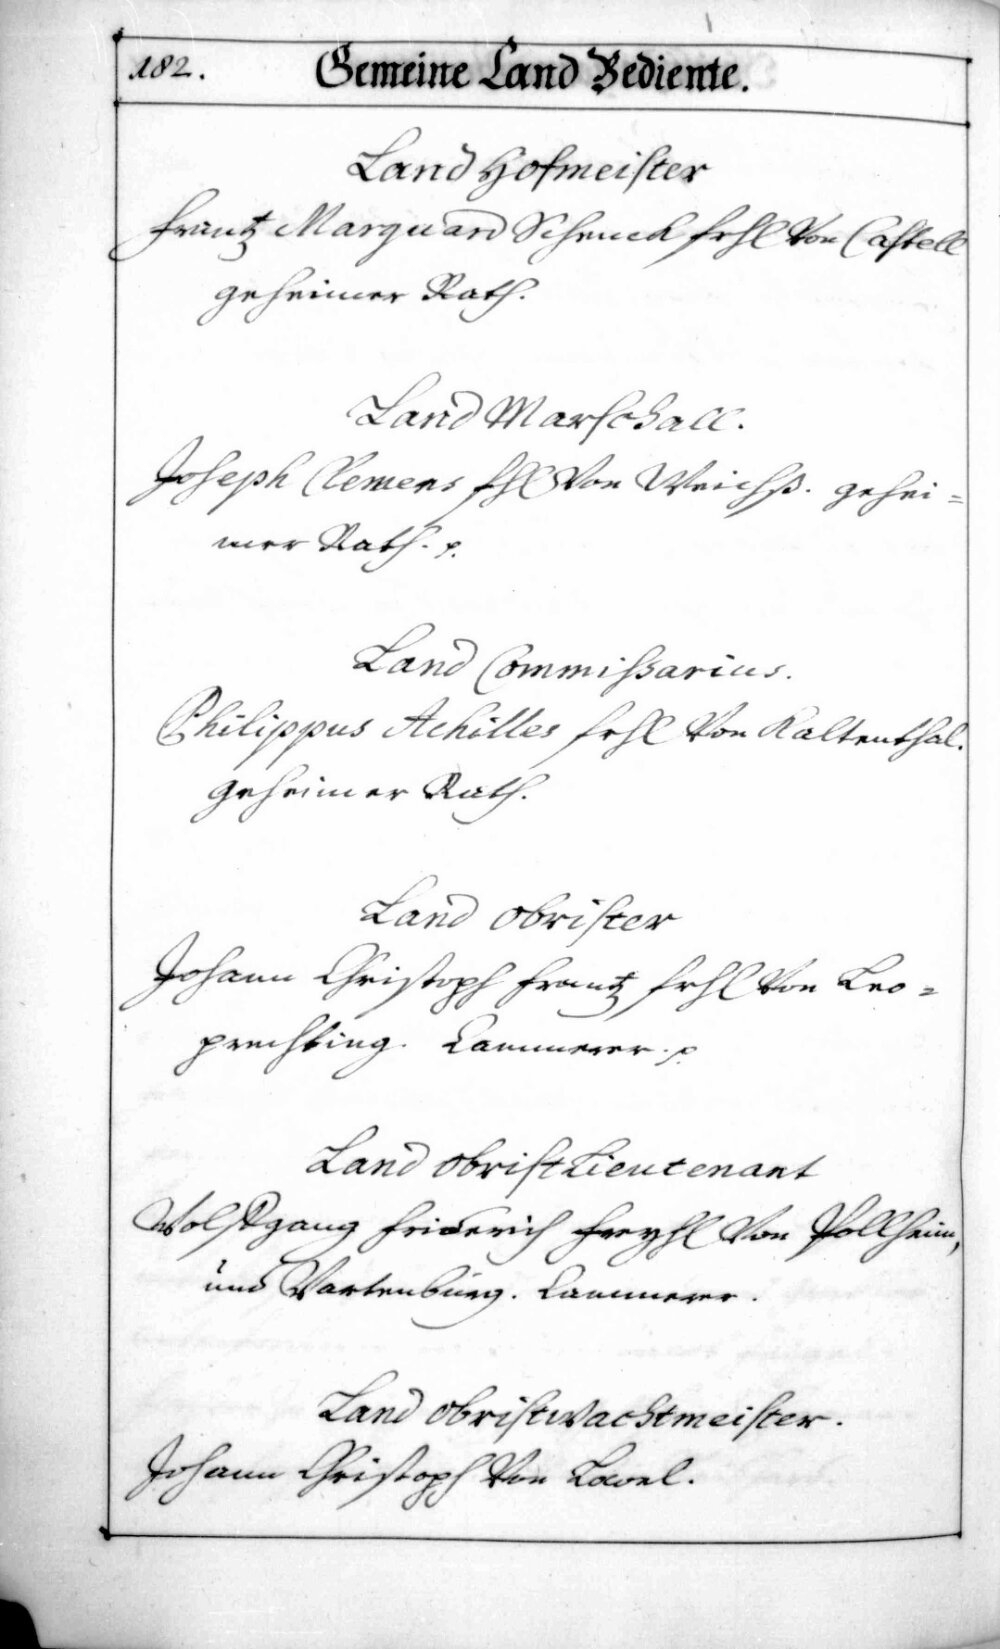 182.
Gemeine Land Bediente.
Land Hofmeister
Frantz Marquard Schenck frhl von Castell
geheimer Rath.
Land Marschall.
Joseph Clemens fhl von Weichß. gehei=
mer Rath. p.
Land Commißarius.
Philippus Achilles frhl von Kaltenthal.
geheimer Rath.
Land obrister
Johann Christoph Frantz frhl von Leo=
prechting. Cammerer. p
Land obrist Lieutenant
Wolffgang Friderich Freyhl von Pollheim,
und Wartenburg. Cammerer.
Land obristwachtmeister.
Johann Christoph von